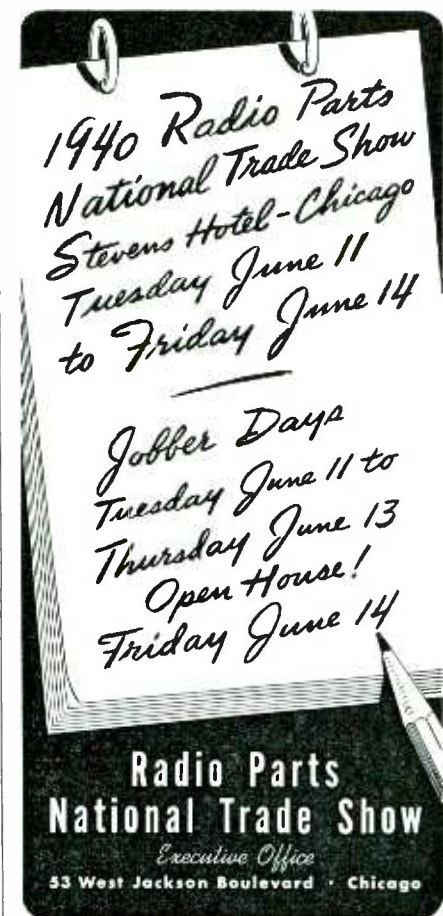 1940 Radio Parts
National Trade Show
Stevens Hotel-Chicago
Tuesday June 11
to Friday June 14
Jobber Days
Tuesday June 11 to
Thursday June 13
Open House!
Friday June 14
Radio Parts
National Trade Show
Executive Office
53 West Jackson Boulevard · Chicago